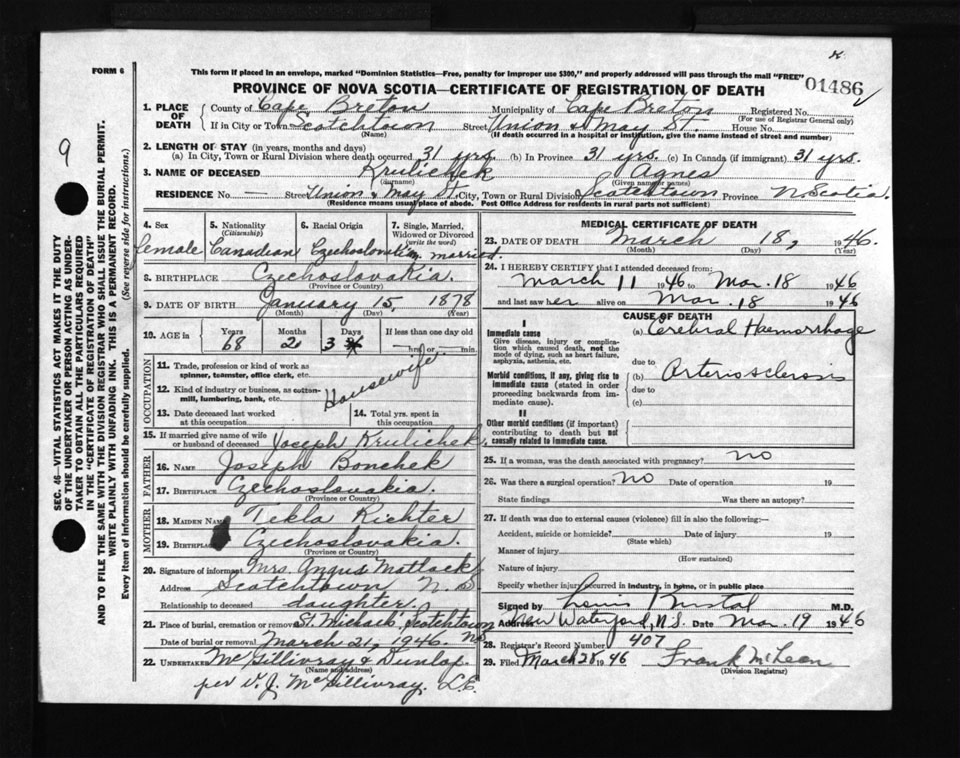 FORM 6
This form if placed in an envelope, marked "Dominion Statistics—Free, penalty for improper use $300," and properly addressed will pass through the mail "FREE"
PROVINCE OF NOVA SCOTIA—CERTIFICATE OF REGISTRATION OF DEATH
01486
9
SEC. 46—VITAL STATISTICS ACT MAKES IT THE DUTY
OF THE UNDERTAKER OR PERSON ACTING AS UNDER-
TAKER TO OBTAIN ALL THE PARTICULARS REQUIRED
IN THE "CERTIFICATE OF REGISTRATION OF DEATH"
AND TO FILE THE SAME WITH THE DIVISION REGISTRAR WHO SHALL ISSUE THE BURIAL PERMIT.
WRITE PLAINLY WITH UNFADING INK. THIS IS A PERMANENT RECORD.
Every item of information should be carefully supplied. (See reverse side for instructions.)
1. PLACE OF DEATH
County of Cape Breton Municipality of Cape Breton Registered No.
(For use of Registrar General only)
If in City or Town Scotchtown Street Union & May St. House No.
(Name) (If death occurred in a hospital or institution, give the name instead of street and number)
2. LENGTH OF STAY (in years, months and days)
(a) In City, Town or Rural Division where death occurred 31 yrs. (b) In Province 31 yrs. (c) In Canada (if immigrant) 31 yrs.
3. NAME OF DECEASED Krulichek Agnes
(Surname) (Given name or names)
RESIDENCE No. — Street Union & May St. City, Town or Rural Division Scotchtown Province N. Scotia
(Residence means usual place of abode. Post Office Address for residents in rural parts not sufficient)
4. Sex 5. Nationality (Citizenship) 6. Racial Origin 7. Single, Married, Widowed or Divorced (write the word)
female Canadian Czechoslovakian married
8. BIRTHPLACE Czechoslovakia.
(Province or Country)
9. DATE OF BIRTH January 15, 1878
(Month) (Day) (Year)
10. AGE in Years Months Days If less than one day old
68 2 3 hrs. or min.
OCCUPATION
11. Trade, profession or kind of work as spinner, teamster, office clerk, etc.
12. Kind of industry or business, as cotton-mill, lumbering, bank, etc.
Housewife
13. Date deceased last worked at this occupation
14. Total yrs. spent in this occupation
15. If married give name of wife or husband of deceased Joseph Krulichek.
FATHER
16. NAME Joseph Bonchek
17. BIRTHPLACE Czechoslovakia.
(Province or Country)
MOTHER
18. MAIDEN NAME Tekla Richter
19. BIRTHPLACE Czechoslovakia.
(Province or Country)
20. Signature of informant Mrs. Angus Mattack
Address Scotchtown N.S
Relationship to deceased daughter.
21. Place of burial, cremation or removal St. Michael's Scotchtown NS
Date of burial or removal March 21, 1946.
22. UNDERTAKER McGillivray & Dunlap.
(Name and address)
per D. J. McGillivray. L.E.
MEDICAL CERTIFICATE OF DEATH
23. DATE OF DEATH March 18, 1946.
(Month) (Day) (Year)
24. I HEREBY CERTIFY that I attended deceased from:
March 11 1946 to Mar. 18 1946
and last saw her alive on Mar. 18 1946
CAUSE OF DEATH
I
Immediate cause (a) Cerebral Haemorrhage
Give disease, injury or complication which caused death, not the mode of dying, such as heart failure, asphyxia, asthenia, etc.
due to
Morbid conditions, if any, giving rise to immediate cause (stated in order proceeding backwards from immediate cause).
(b) Arteriosclerosis
due to
(c)
II
Other morbid conditions (if important) contributing to death but not causally related to immediate cause.
25. If a woman, was the death associated with pregnancy? no
26. Was there a surgical operation? no Date of operation 19
State findings Was there an autopsy?
27. If death was due to external causes (violence) fill in also the following:—
Accident, suicide or homicide? Date of injury 19
(State which)
Manner of injury
(How sustained)
Nature of injury
Specify whether injury occurred in industry, in home, or in public place
Signed by M.D.
Address New Waterford, N.S. Date Mar. 19 1946
28. Registrar's Record Number 407
29. Filed March 28 1946 Frank McLean
(Division Registrar)